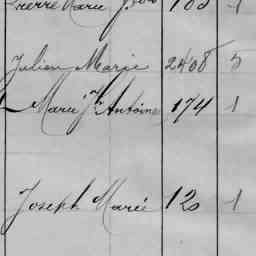 Pierre Marie
Julien Marie 2408 5
Marie Jn Antoine 174 1
Joseph Marie 120 1